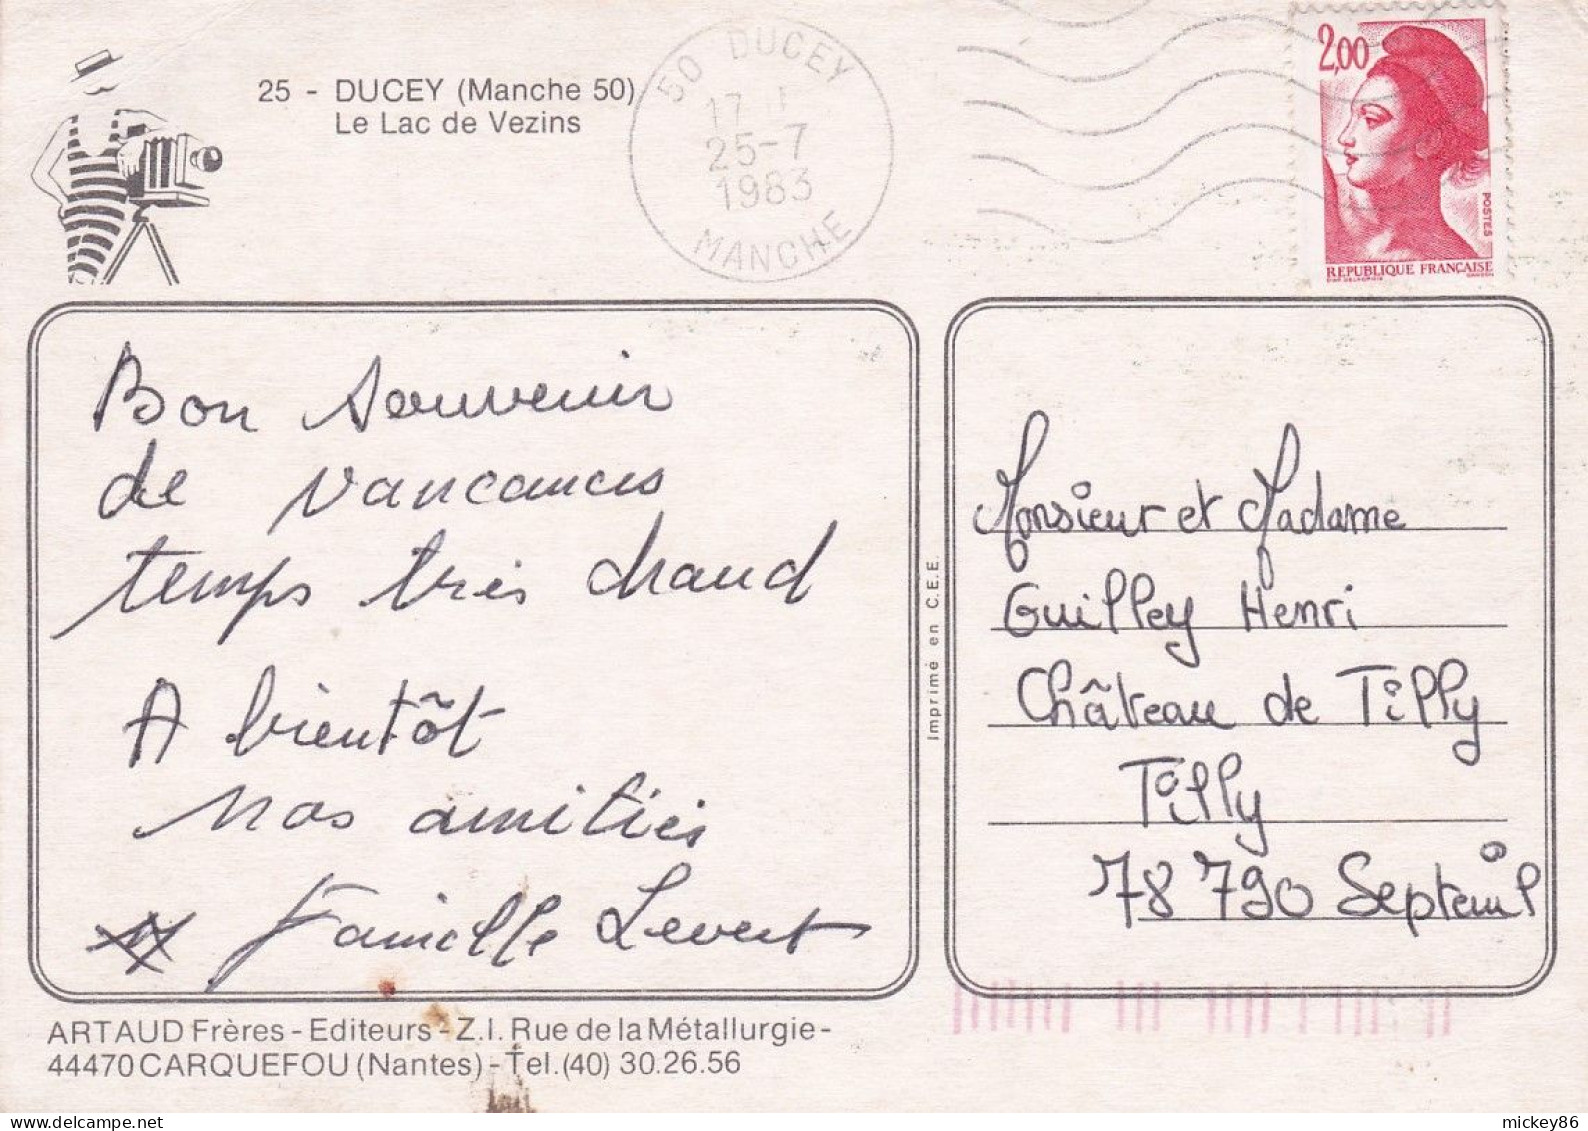 25 - DUCEY (Manche 50)
Le Lac de Vezins
50 DUCEY
17 H
25-7
1983
MANCHE
2,00
POSTES
REPUBLIQUE FRANÇAISE
Bon Souvenir
de vancances
temps très chaud
A bientôt
nos amitiés
Famille Levert
Imprimé en C.E.E.
Monsieur et Madame
Guilley Henri
Château de Tilly
Tilly
78 790 Septeuil
ARTAUD Frères - Editeurs - Z.I. Rue de la Métallurgie -
44470 CARQUEFOU (Nantes) - Tel. (40) 30.26.56
mickey86